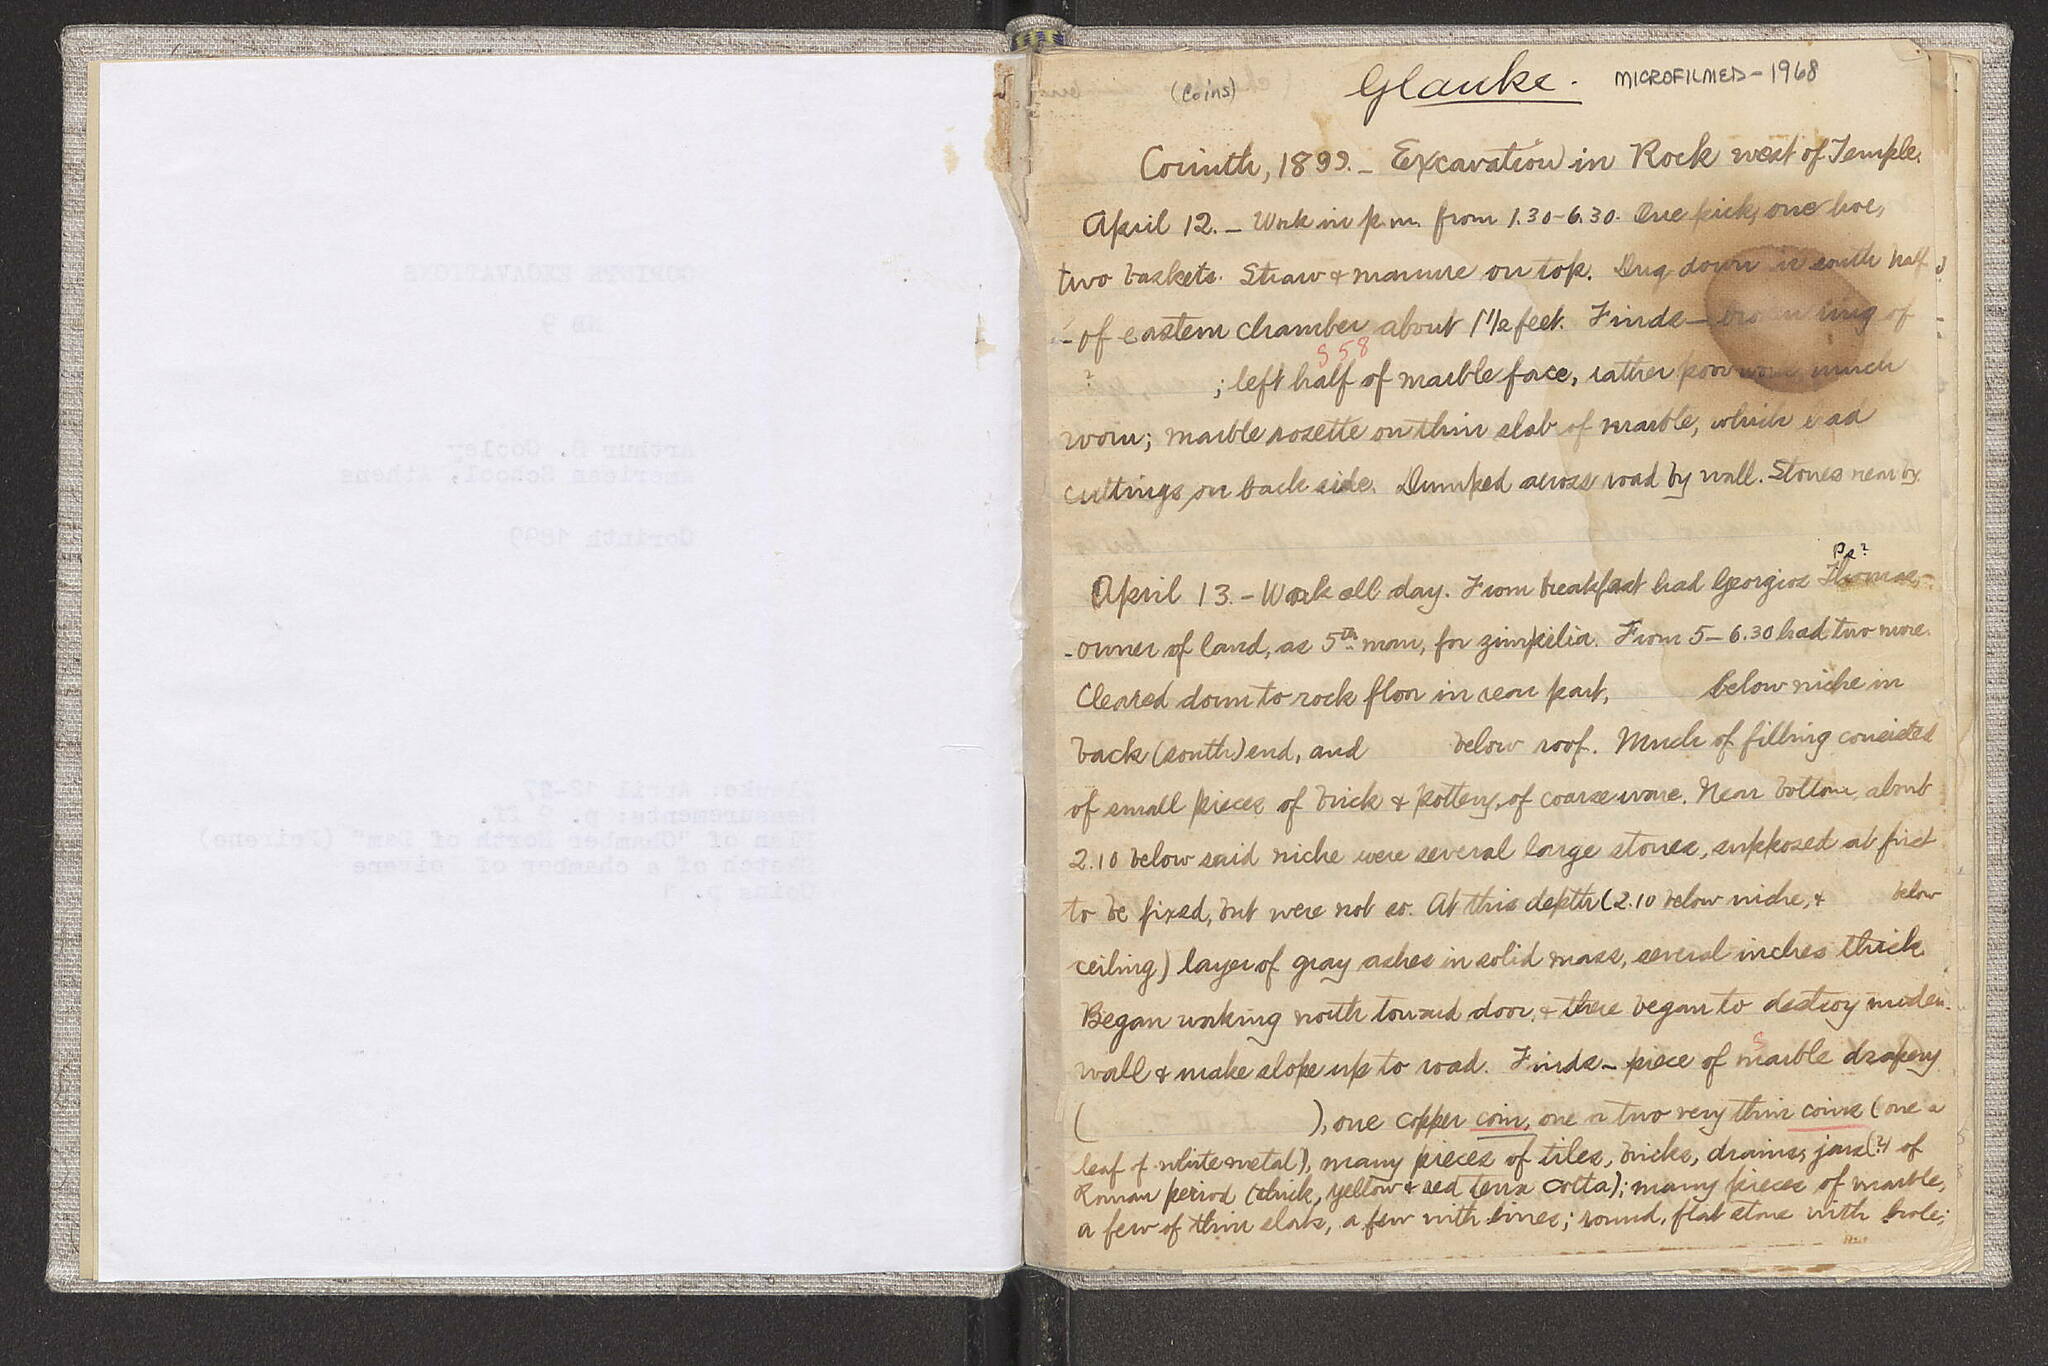 (Coins)
Glauke.
MICROFILMED - 1968
Corinth, 1899. - Excavation in Rock west of Temple.
April 12. - Work in p.m. from 1.30-6.30. One pick, one hoe,
two baskets. Straw & manure on top. Dug down in south half
of eastern chamber about 1 1/2 feet. Finds - ring of
S 58
? ; left half of marble face, rather poor work much
worn; marble rosette on thin slab of marble, which had
cuttings on back side. Dumped across road by wall. Stones near by.
Pa?
April 13. - Work all day. From breakfast had Georgios
owner of land, as 5th man, for zimpilia. From 5-6.30 had two more.
Cleared down to rock floor in rear part, below niche in
back (south) end, and below roof. Much of filling consisted
of small pieces of brick & pottery, of coarse ware. Near bottom, about
2.10 below said niche were several large stones, supposed at first
to be fixed, but were not so. At this depth (2.10 below niche, & below
ceiling) layer of gray ashes in solid mass, several inches thick.
Began working north toward door, & there began to destroy modern
S
wall & make slope up to road. Finds - piece of marble drapery
( ), one copper coin, one or two very thin coins (one a
leaf of white metal), many pieces of tiles, bricks, drains, jars(?) of
Roman period (thick, yellow & red terra cotta); many pieces of marble,
a few of thin slabs, a few with lines; round, flat stone with hole;